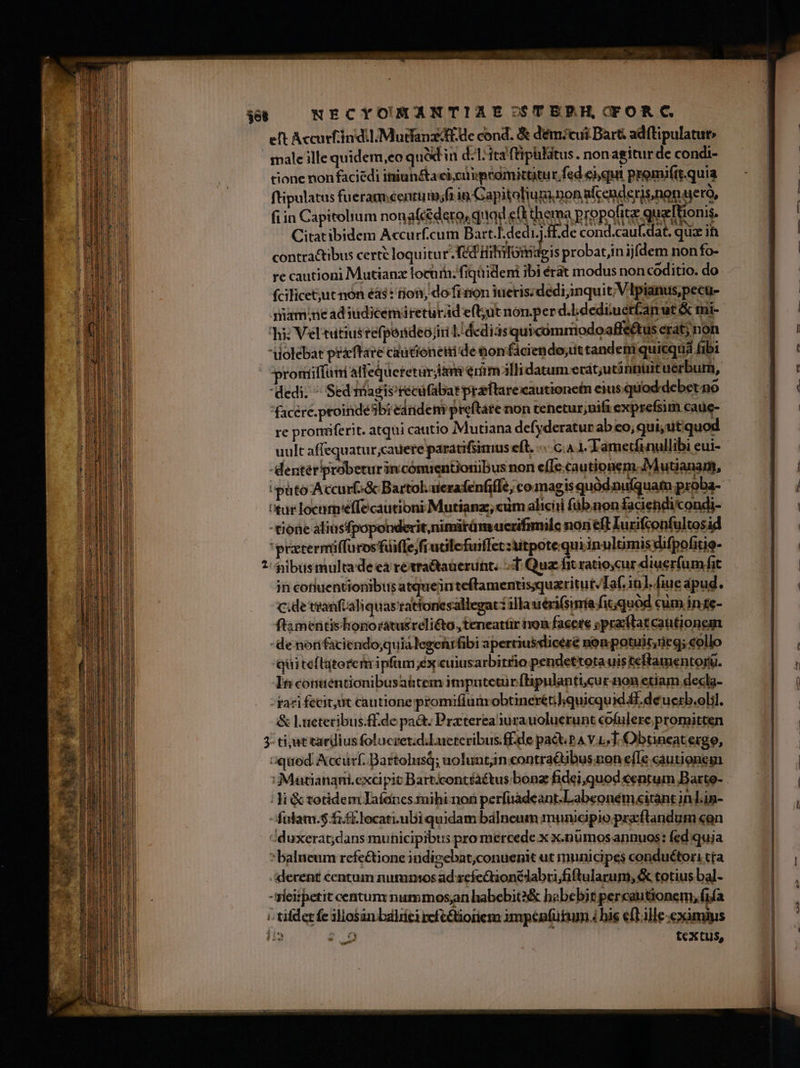 368 NECYOMANTIAE
eſt Accurſ.in d.l. Mutianæ ff.de cond. & dem. cui Bart. adſtipulatur
male ille quidem, eo quòd in d.l. ita ſtipulatus. non agitur de condi-
tione non faciẽdi iniuncta ei, cui promittitur, ſed ei, qui promiſit. quia
ſtipulatus fueram, centum, ſi in Capitolium non aſcenderis, non uerò,
ſi in Capitolium non aſcẽdero, quod eſt thema propoſitæ quæſtionis.
Citat ibidem Accurſ. cum Bart. l. dedi. j. ff. de cond. cauſ. dat. quæ in
contractibus certè loquitur. ſed nihilomagis probat, in ijſdem non fo-
re cautioni Mutianæ locum. ſiquidem ibi erat modus non cõditio. do
ſcilicet, ut non eas: non, do ſi non iueris. dedi, inquit, Vlpianus, pecu-
niam, ne ad iudicem iretur. id eſt, ut non. per d.l. dedi. uerſ. an ut & mi-
hi. Vel tutius reſpondeo, in l. dedi. is qui commodo affectus erat, non
uolebat præſtare cautionem de non faciendo, ut tandem quicquã ſibi
promiſſum aſſequeretur, iam enim illi datum erat, ut innuit uerbum,
dedi. Sed magis recuſabat præſtare cautionem eius quod debet nõ
facere. proinde ſibi eandem præſtare non tenetur, niſi expreſsim caue-
re promiſerit. atqui cautio Mutiana deſyderatur ab eo, qui, ut quod
uult aſſequatur, cauere paratiſsimus eſt. c. a 1. Tametſi nullibi eui-
denter probetur in conuentionibus non eſſe cautionem Mutianam,
puto Accurſ. & Bartol. ueram ſenſiſſe, eo magis quòd nuſquam proba-
tur locum eſſe cautioni Mutianæ, cùm alicui ſub non faciendi condi-
tione aliud ſpoponderit, nimirùm ueriſimile non eſt Iuriſconſultos id
prætermiſſuros fuiſſe, ſi utile fuiſſet: utpote qui in ultimis diſpoſitio-
2 nibus multa de ea re tractauerunt. T Quæ ſit ratio, cur diuerſum ſit
in conuentionibus atque in teſtamentis, quæritur. Iaſ. in l. ſiue apud.
C. de tranſ. aliquas rationes allegat: illa ueriſsima ſit, quòd cùm in te-
ſtamentis honoratus relicto, teneatur non facere, præſtat cautionem
de non faciendo, quia legem ſibi apertius dicere non potuit, neq; collo
qui teſtatorem ipſum, ex cuius arbitrio pendet tota uis teſtamentorũ.
In conuentionibus autem imputetur ſtipulanti, cur non etiam decla-
rari fecit, ut cautione promiſſum obtineret. l. quicquid. ff. de uerb. obl.
& l. ueteribus. ff. de pact. Præterea iura uoluerunt cõſulere promitten
3 ti, ut tardius ſolueret. d.l. ueteribus. ff. de pact. PAV L. T Obtineat ergo,
quod Accurſ. Bartoluſq; uolunt, in contractibus non eſſe cautionem
Mutianam. excipit Bart. contractus bonæ fidei, quod centum Barto-
li & totidem Iaſones mihi non perſuadeant. Labeonem citant in l. in-
ſulam. §. fi. ff. locati. ubi quidam balneum municipio præſtandum con
duxerat, dans municipibus pro mercede xx. nũmos annuos: ſed quia
balneum refectione indigebat, conuenit ut municipes conductori trã
derent centum nummos ad refectionẽ labri, fiſtularum, & totius bal-
nei: petit centum nummos, an habebit? & habebit per cautionem, ſi ſa
tiſdet ſe illos in balnei refectionem impenſurum: hic eſt ille eximius
textus,